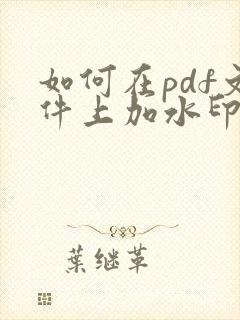 如何在pdf文
件上加水印
葉继革